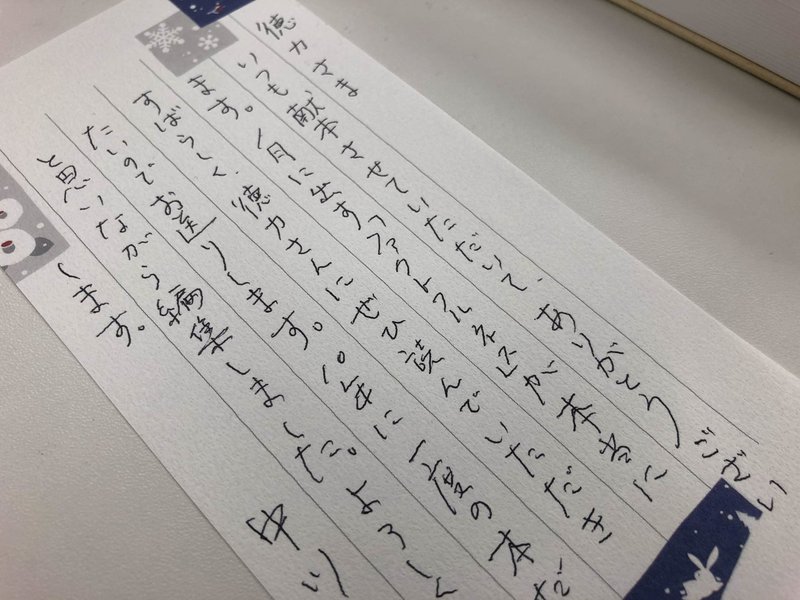 徳力さま
いつも献本させていただいて、ありがとうござい
ます。1月に出すファクトフルネスが本当に
すばらしく、徳力さんにぜひ読んでいただき
たいのでお送りします。10年に一度の本だ
と思いながら編集しました。よろしく
します。
中川